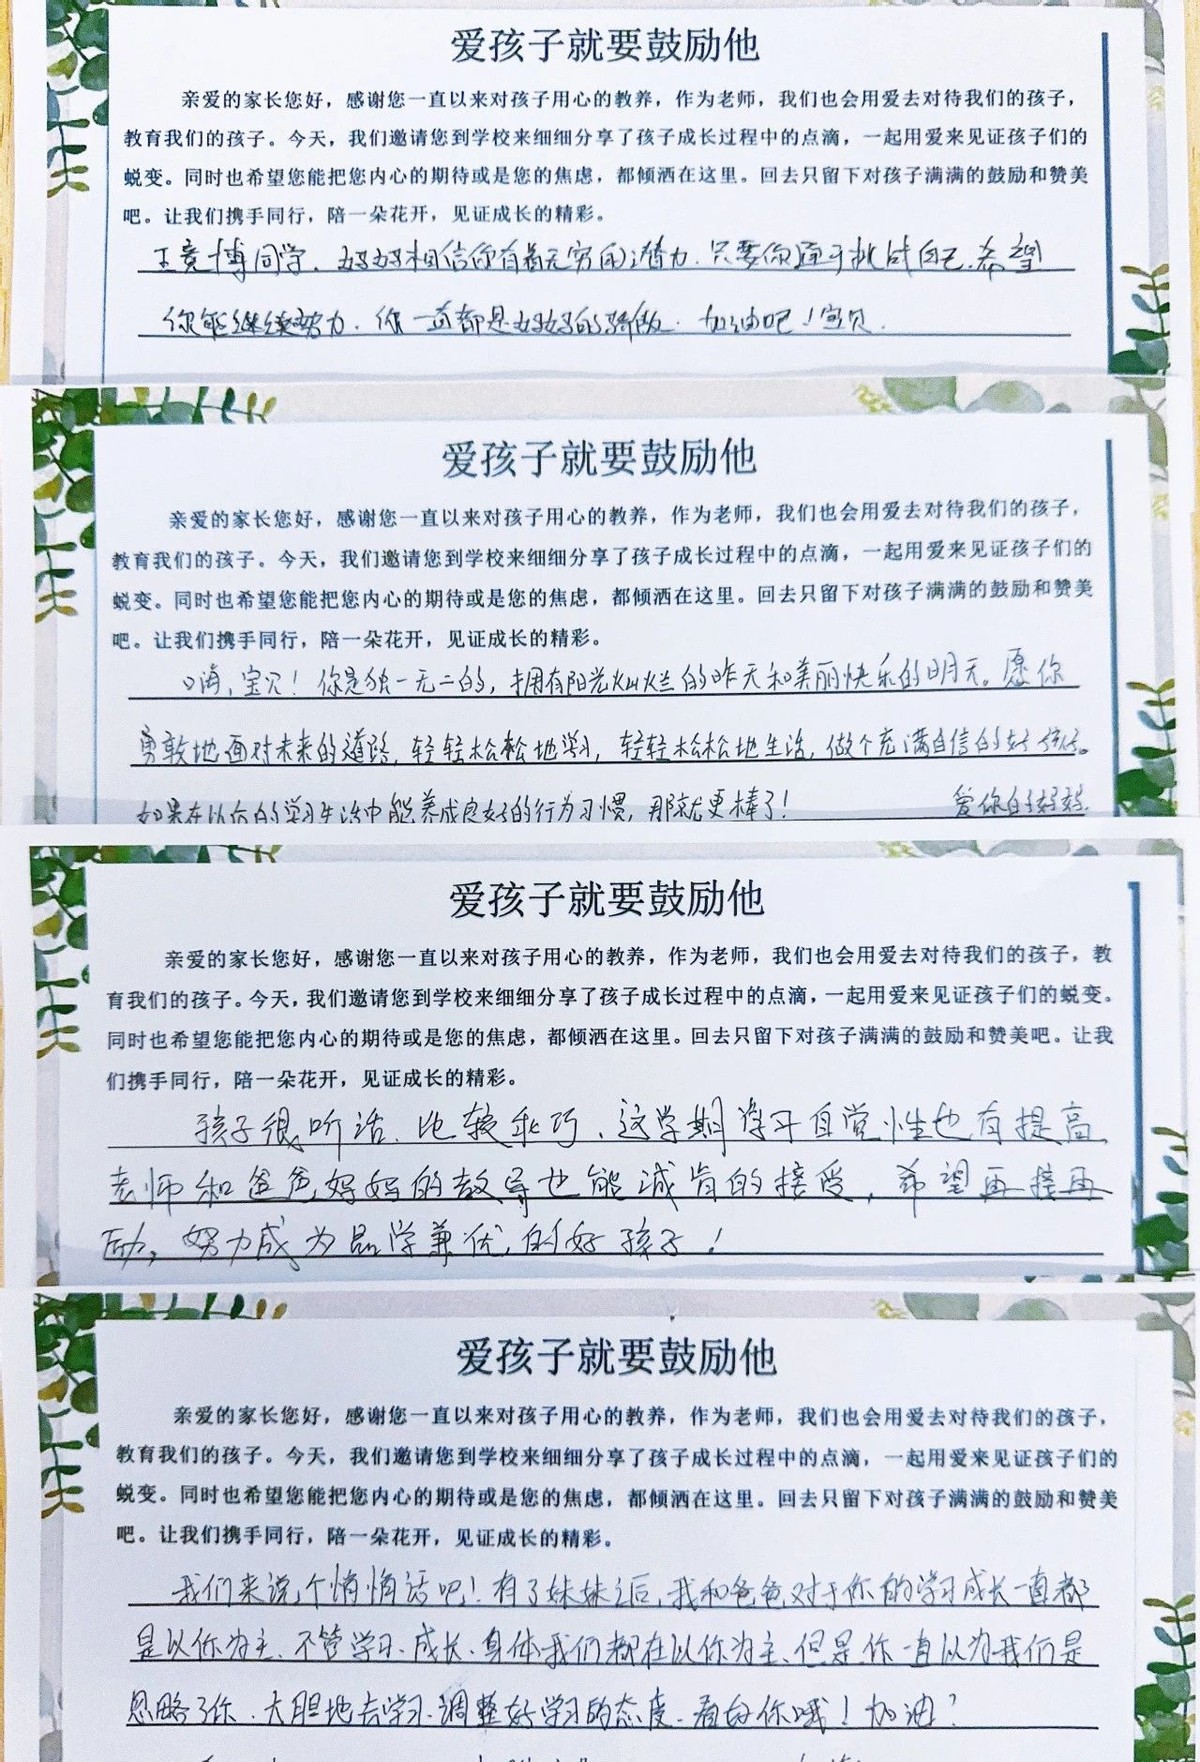 爱孩子就要鼓励他
亲爱的家长您好，感谢您一直以来对孩子用心的教养，作为老师，我们也会用爱去对待我们的孩子，
教育我们的孩子。今天，我们邀请您到学校来细细分享了孩子成长过程中的点滴，一起用爱来见证孩子们的
蜕变。同时也希望您能把您内心的期待或是您的焦虑，都倾洒在这里。回去只留下对孩子满满的鼓励和赞美
吧。让我们携手同行，陪一朵花开，见证成长的精彩。
王竟博同学，妈妈相信你有着无穷的潜力，只要你勇于挑战自己，希望
你能继续努力，你一直都是妈妈的骄傲，加油吧！宝贝。
爱孩子就要鼓励他
亲爱的家长您好，感谢您一直以来对孩子用心的教养，作为老师，我们也会用爱去对待我们的孩子，
教育我们的孩子。今天，我们邀请您到学校来细细分享了孩子成长过程中的点滴，一起用爱来见证孩子们的
蜕变。同时也希望您能把您内心的期待或是您的焦虑，都倾洒在这里。回去只留下对孩子满满的鼓励和赞美
吧。让我们携手同行，陪一朵花开，见证成长的精彩。
嗨，宝贝！你是独一无二的，拥有阳光灿烂的昨天和美丽快乐的明天。愿你
勇敢地面对未来的道路，轻轻松松地学习，轻轻松松地生活，做个充满自信的好孩子。
如果在以后的学习生活中能养成良好的行为习惯，那就更棒了！ 爱你的妈妈
爱孩子就要鼓励他
亲爱的家长您好，感谢您一直以来对孩子用心的教养，作为老师，我们也会用爱去对待我们的孩子，教
育我们的孩子。今天，我们邀请您到学校来细细分享了孩子成长过程中的点滴，一起用爱来见证孩子们的蜕变。
同时也希望您能把您内心的期待或是您的焦虑，都倾洒在这里。回去只留下对孩子满满的鼓励和赞美吧。让我
们携手同行，陪一朵花开，见证成长的精彩。
孩子很听话、比较乖巧、这学期学习自觉性也有提高，
老师和爸爸妈妈的教导也能诚肯的接受，希望再接再
励，努力成为品学兼优，的好孩子！
爱孩子就要鼓励他
亲爱的家长您好，感谢您一直以来对孩子用心的教养，作为老师，我们也会用爱去对待我们的孩子，
教育我们的孩子。今天，我们邀请您到学校来细细分享了孩子成长过程中的点滴，一起用爱来见证孩子们的
蜕变。同时也希望您能把您内心的期待或是您的焦虑，都倾洒在这里。回去只留下对孩子满满的鼓励和赞美
吧。让我们携手同行，陪一朵花开，见证成长的精彩。
我们来说个悄悄话吧！有了妹妹之后，我和爸爸对于你的学习成长一直都
是以你为主、不管学习、成长、身体我们都在以你为主、但是你一直以为我们是
忽略了你、大胆地去学习、调整好学习的态度、看好你哦！加油？